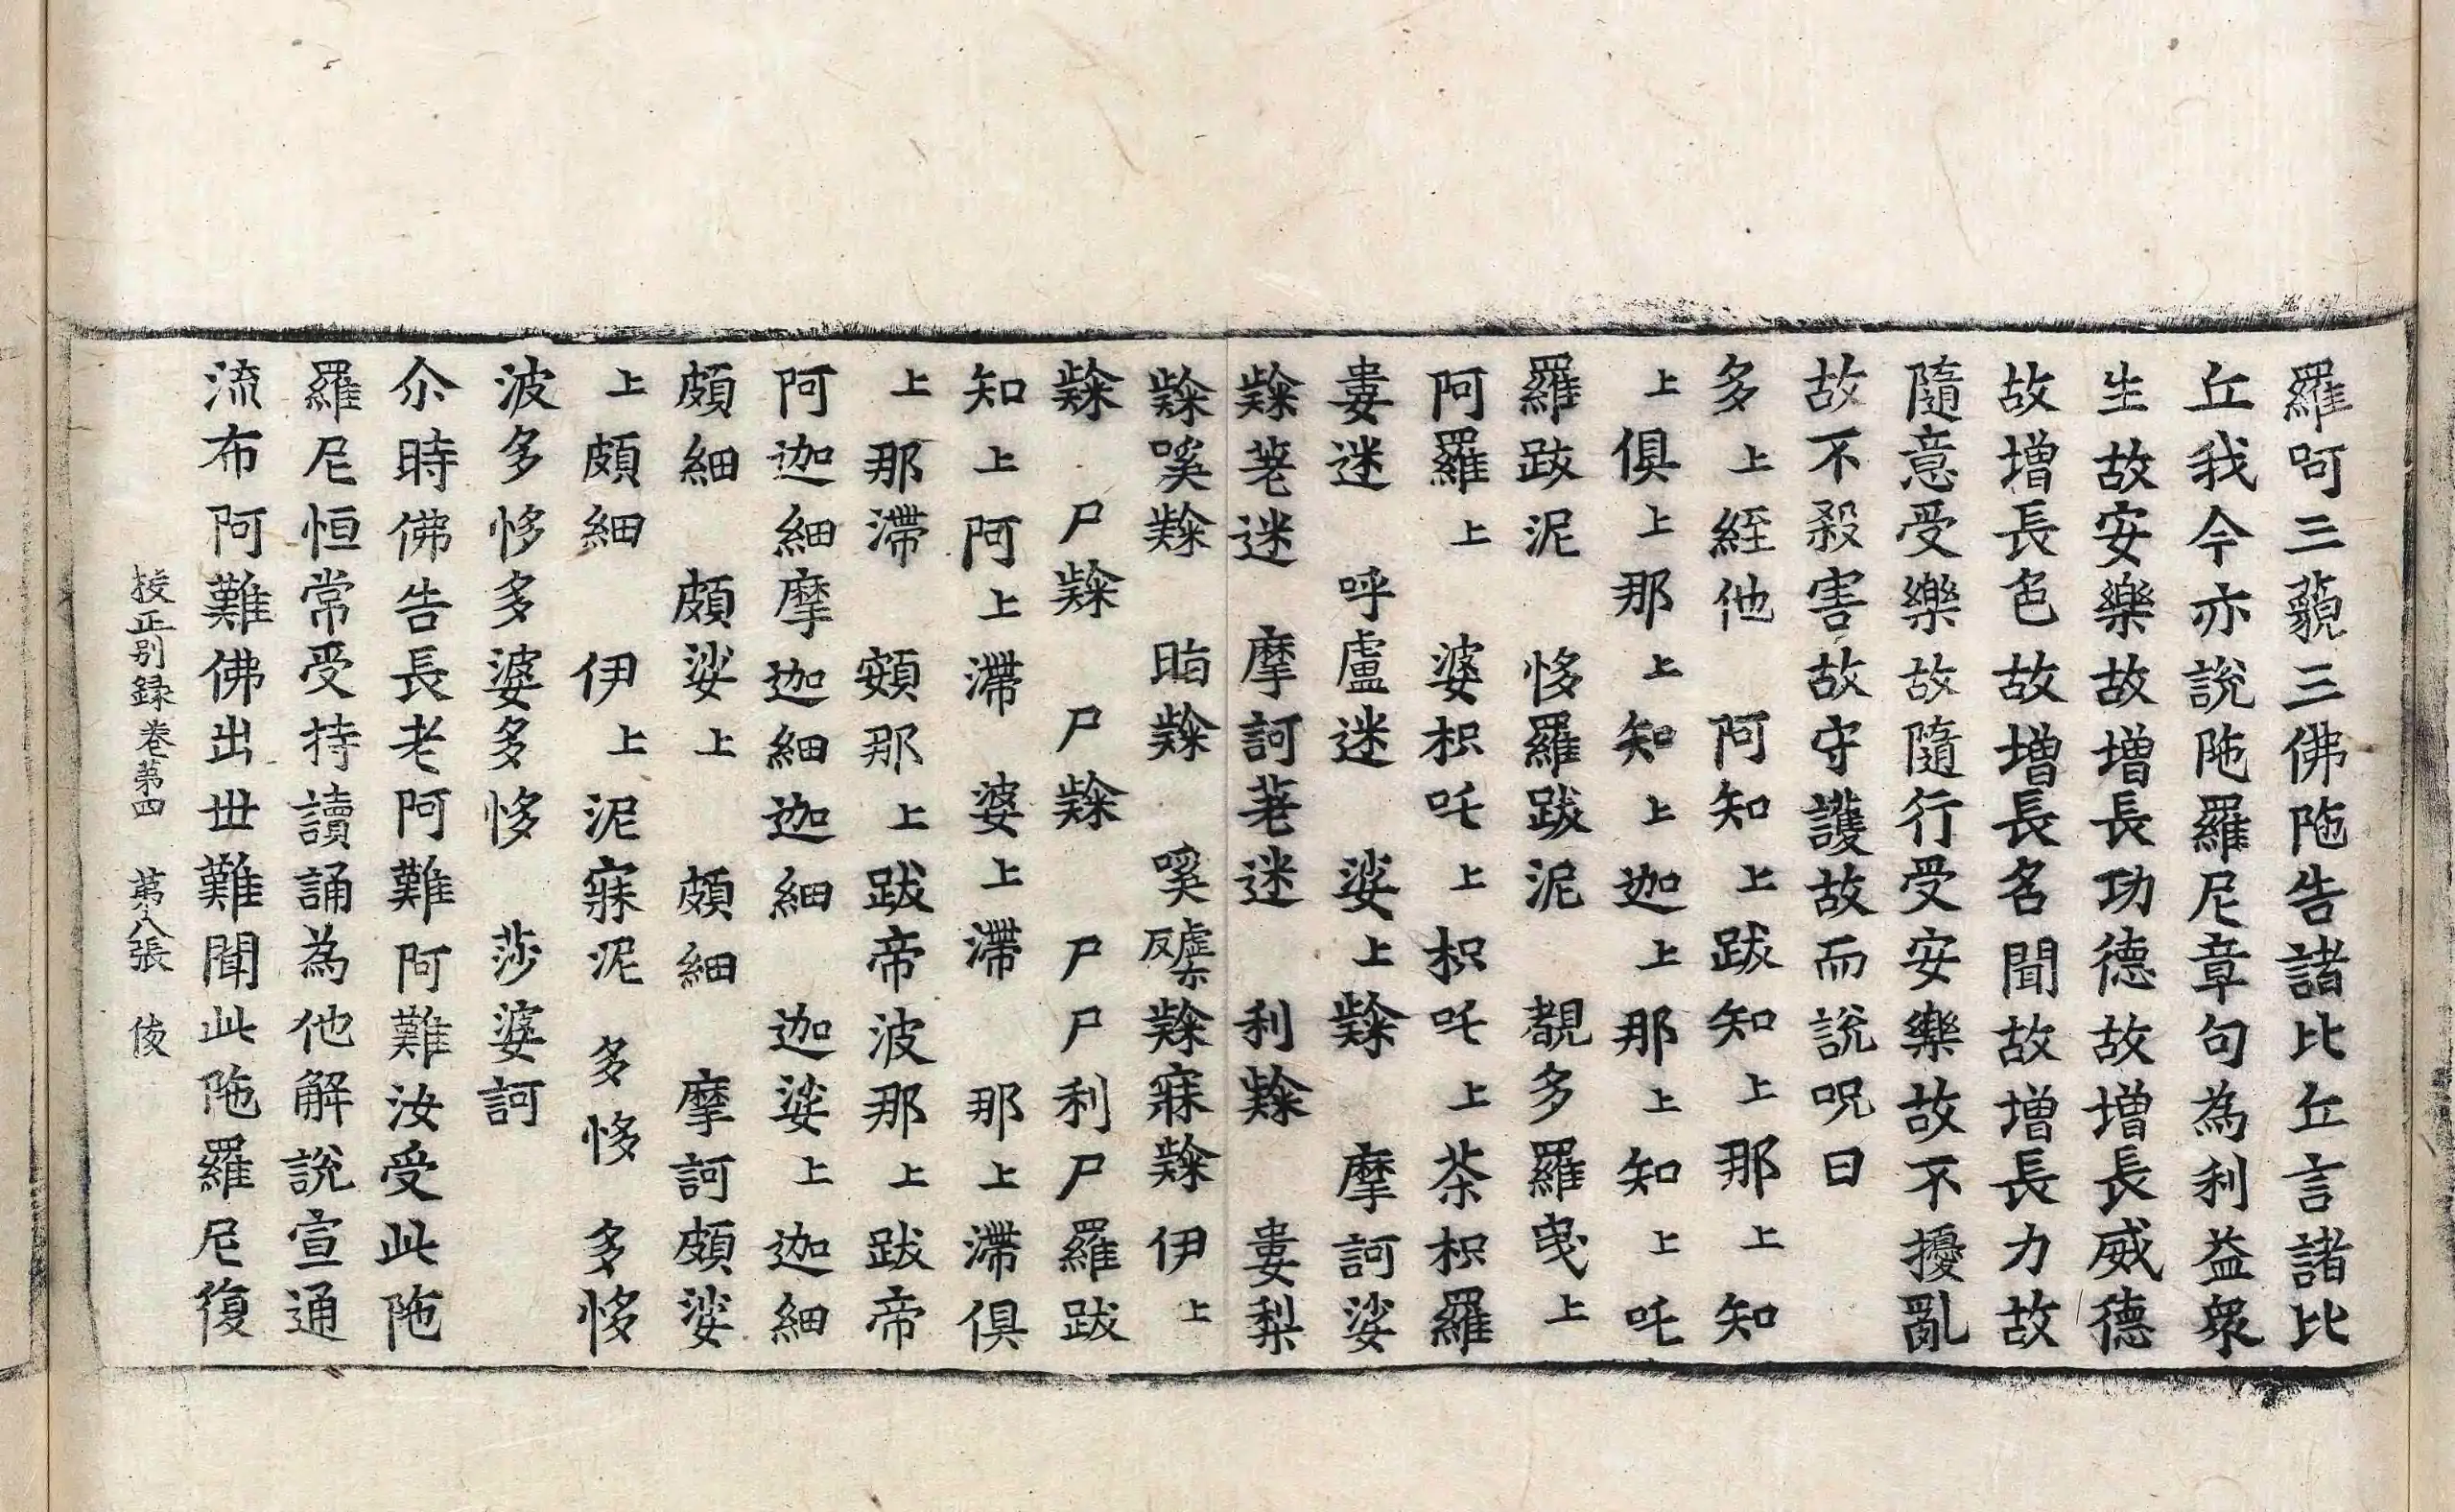 羅呵三藐三佛陁告諸比丘言諸比
丘我今亦說陁羅尼章句為利益衆
生故安樂故增長功德故增長威德
故增長色故增長名聞故增長力故
隨意受樂故隨行受安樂故不擾亂
故不殺害故守護故而說呪曰
多上絰他 阿知上跋知上那上知
上俱上那上知上迦上那上知上吒
羅跋泥 恀羅跋泥 覩多羅曳上
阿羅上 婆枳吒上枳吒上茶枳羅
婁迷 呼盧迷 娑上 摩訶娑
迷 摩訶迷 利 婁梨
嘊 伊上
尸 尸 尸尸利尸羅跋
知上阿上滯 婆上滯 那上滯俱
上那滯 頞那上跋帝波那上跋帝
阿迦細摩迦細迦細 迦娑上迦細
頗細 頗娑上 頗細 摩訶頗娑
上頗細 伊上泥寐泥 多恀 多恀
波多恀多婆多恀 莎婆訶
尒時佛告長老阿難阿難汝受此陁
羅尼恒常受持讀誦為他解說宣通
流布阿難佛出世難聞此陁羅尼復
挍正別録卷第四 第八張 俊